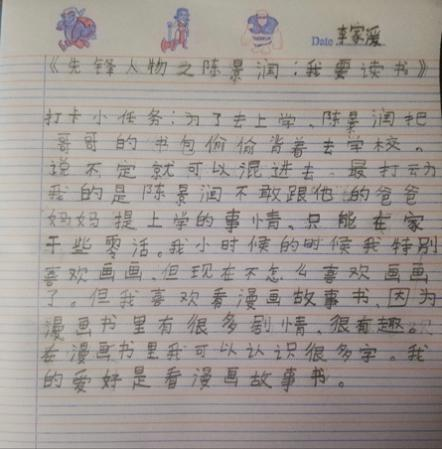 Date 李家湲
《先锋人物之陈景润：我要读书》
打卡小任务：为了去上学、陈景润把
哥哥的书包偷偷背着去学校。
说不定就可以混进去。最打动
我的是陈景润不敢跟他的爸爸
妈妈提上学的事情、只能在家
干些零活。我小时候的时候我特别
喜欢画画、但现在不怎么喜欢画画
了。但我喜欢看漫画故事书、因为
漫画书里有很多剧情、很有趣。
在漫画书里我可以认识很多字。我
的爱好是看漫画故事书。